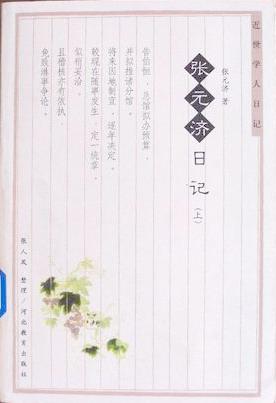 近世学人日记
张元济 著
张元济日记
(上)
告伯恒,总馆拟办预算,
并拟推诸分馆。
将来因地制宜,逐年决定。
较现在随事发生,定一统章,
似稍妥洽。
且稽核亦有依执,
免致临事争论。
张人凤 整理/河北教育出版社